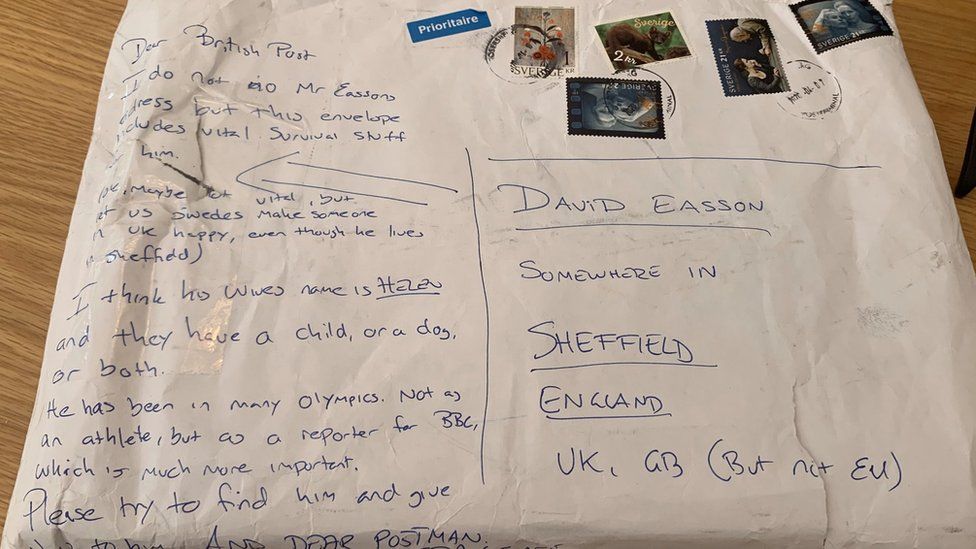 Prioritaire
SVERIGE 1 KR
Sverige
2 KR
SVERIGE 21 KR
Dear British Post
I do not Mr Eassons
but this envelope
vital survival stuff
him.
maybe not vital, but
us Swedes make someone
UK happy, even though he lives
Sheffield)
I think his wives name is HELEN
and they have a child, or a dog,
or both.
He has been in many Olympics. Not as
an athlete, but as a reporter for BBC,
which is much more important.
Please try to find him and give
to him. AND DEAR POSTMAN.
DAVID EASSON
SOMEWHERE IN
SHEFFIELD
ENGLAND
UK, GB (But not EU)